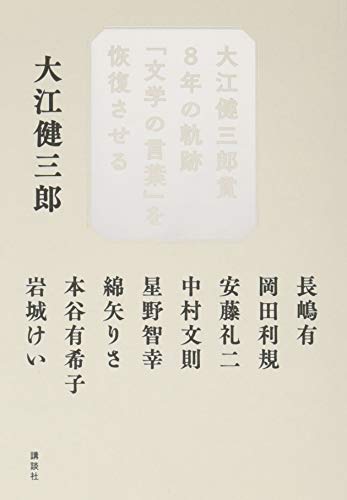 大江健三郎賞
8年の軌跡
「文学の言葉」を
恢復させる
大江健三郎
長嶋有
岡田利規
安藤礼二
中村文則
星野智幸
綿矢りさ
本谷有希子
岩城けい
講談社